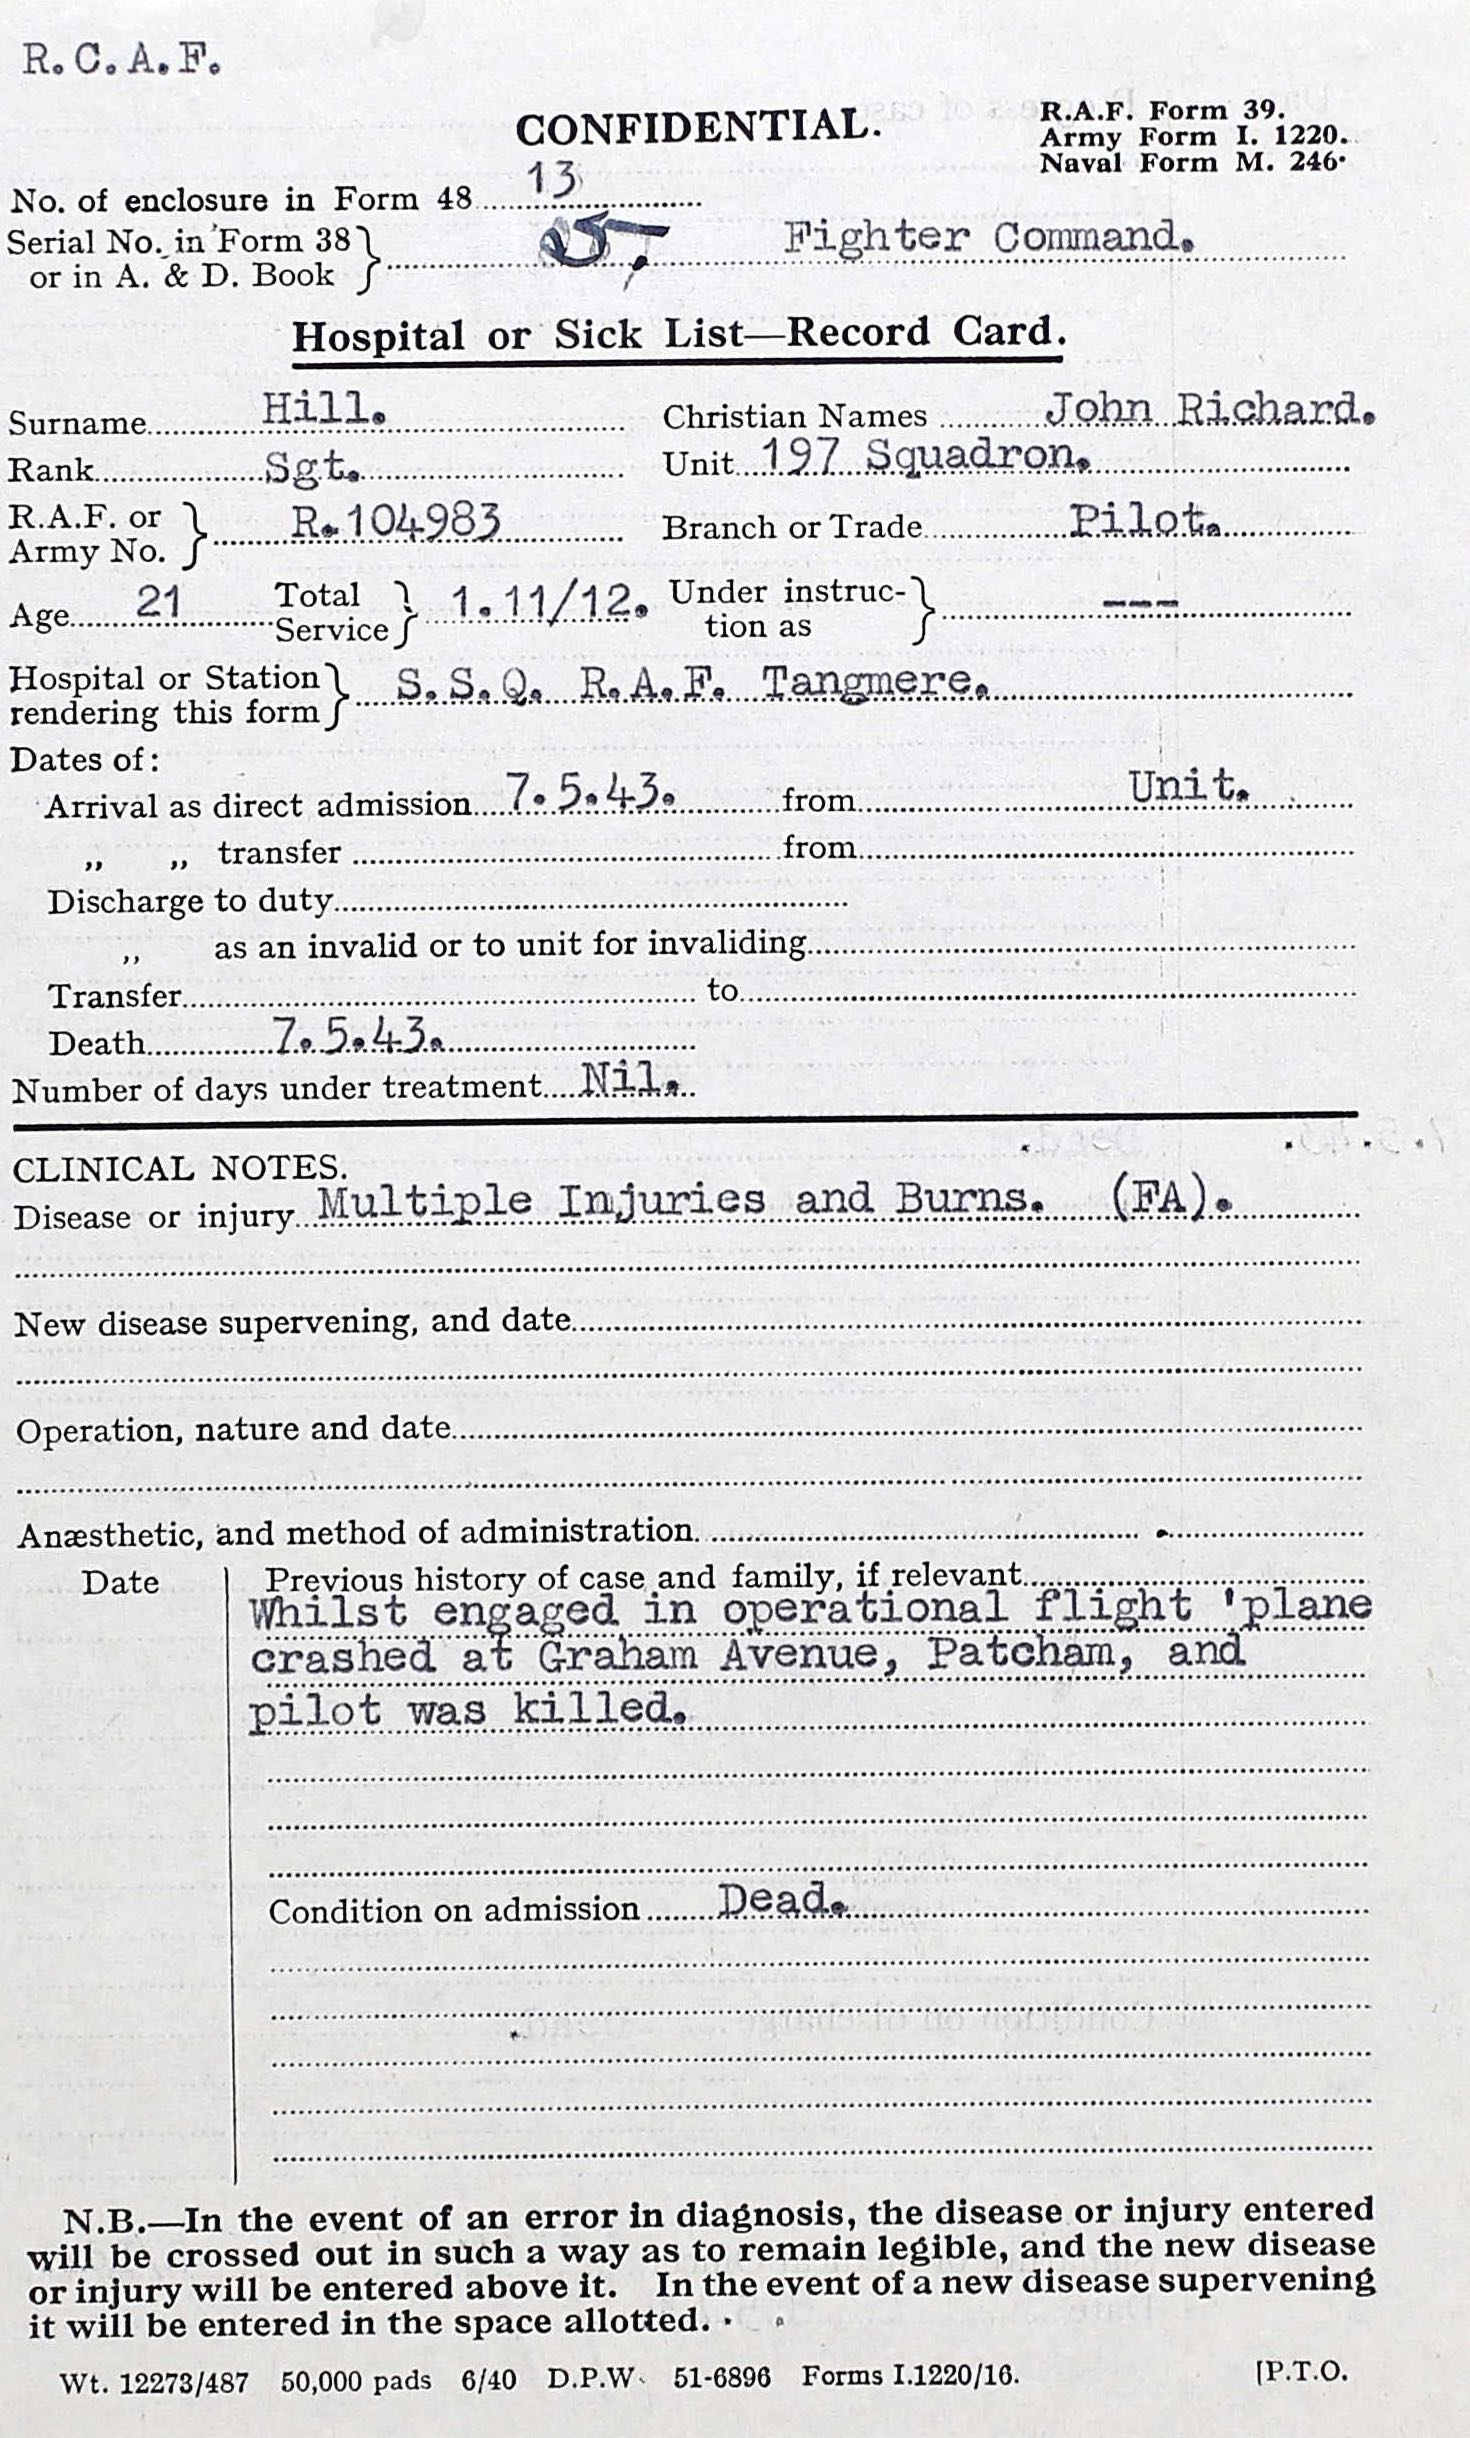 R.C.A.F.
CONFIDENTIAL.
R.A.F. Form 39.
Army Form I. 1220.
Naval Form M. 246.
No. of enclosure in Form 48 13
Serial No. in Form 38 or in A. & D. Book Fighter Command.
Hospital or Sick List—Record Card.
Surname Hill. Christian Names John Richard.
Rank Sgt. Unit 197 Squadron.
R.A.F. or Army No. R.104983 Branch or Trade Pilot.
Age 21 Total Service 1.11/12. Under instruc-tion as ---
Hospital or Station rendering this form S.S.Q. R.A.F. Tangmere.
Dates of:
Arrival as direct admission 7.5.43. from Unit.
,, ,, transfer from
Discharge to duty
,, as an invalid or to unit for invaliding
Transfer to
Death 7.5.43.
Number of days under treatment Nil.
CLINICAL NOTES.
Disease or injury Multiple Injuries and Burns. (FA).
New disease supervening, and date
Operation, nature and date
Anæsthetic, and method of administration.
Date Previous history of case and family, if relevant
Whilst engaged in operational flight 'plane
crashed at Graham Avenue, Patcham, and
pilot was killed.
Condition on admission Dead.
N.B.—In the event of an error in diagnosis, the disease or injury entered
will be crossed out in such a way as to remain legible, and the new disease
or injury will be entered above it. In the event of a new disease supervening
it will be entered in the space allotted.
Wt. 12273/487 50,000 pads 6/40 D.P.W. 51-6896 Forms I.1220/16. [P.T.O.